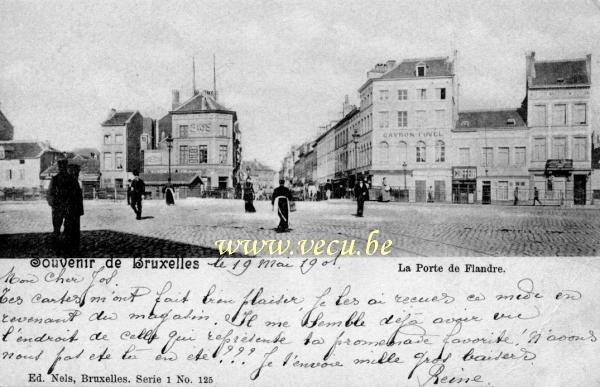 GAVRON POVEL
www.vecu.be
Souvenir de Bruxelles le 19 Mai 1901.
La Porte de Flandre.
Mon cher Jos.
Tes cartes m'ont fait bien plaisir je les ai recues ce midi en
revenant du magasin. Il me semble déjà avoir vu
l'endroit de celle qui représente ta promenade favorite! N'avons
nous pas été là en été??? Je t'envoie mille gros baisers
Reine.
Ed. Nels, Bruxelles. Serie 1 No. 125